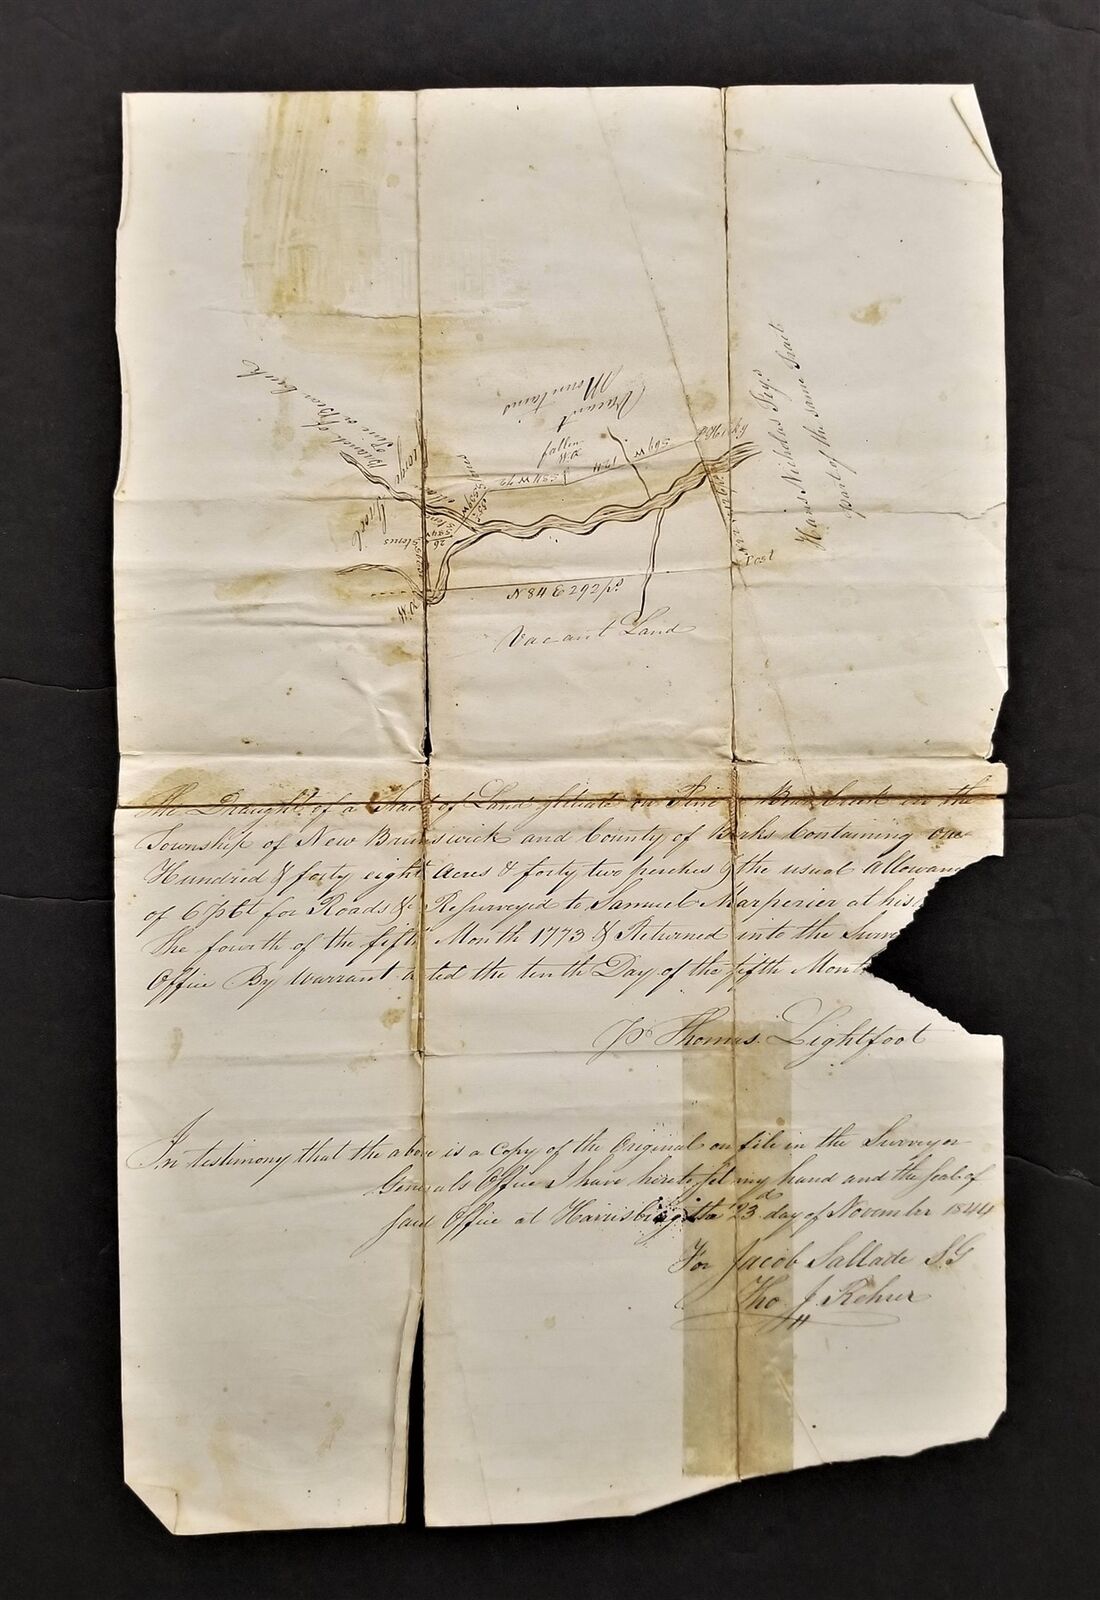 Branch of
Pine or Bear creek
George
Tract
Vacant
Mountains
S 69 W
S 84 W 72
W.O.
N 84 E 292 ps
Post
Vacant Land
Hans Nicholas
part of the same Tract
The Draught of a Tract of Land situate on Pine Bear Creek in the
Township of New Brunswick and County of Berks Containing one
Hundred & forty eight Acres & forty two perches & the usual Allowan
of 6 p Ct for Roads &c Resurveyed to Samuel Harperier at his
The fourth of the fifth Month 1773 & Returned into the Surv
Office By Warrant ated the tenth Day of the fifth Mont
Thomas Lightfoot
In testimony that the above is a copy of the Original on file in the Surveyor
Generals Office I have hereto set my hand and the Seal of
said Office at Harrisburg 23d day of November 1844
For Jacob Sallade S.G
Tho J. Rehrer